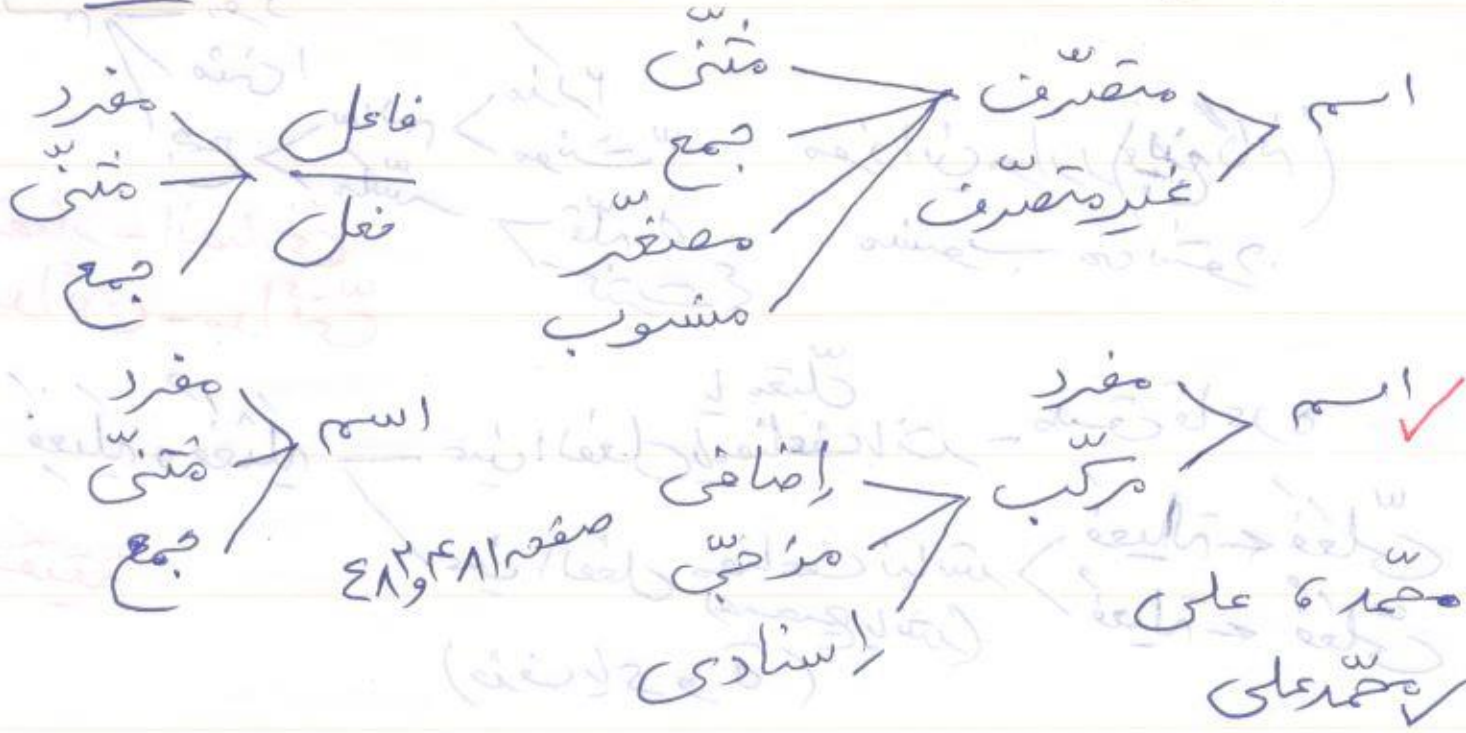 اسم
متصرّف
غیرمتصرّف
مثنّی
جمع
مصغّر
منسوب
فاعل
فعل
مفرد
مثنّی
جمع
اسم
مفرد
مرکّب
إضافی
مزجیّ
إسنادی
صفحه ۴۸۱ و ۴۸۲
اسم
مفرد
مثنّی
جمع
محمّد، علی
محمّدعلی